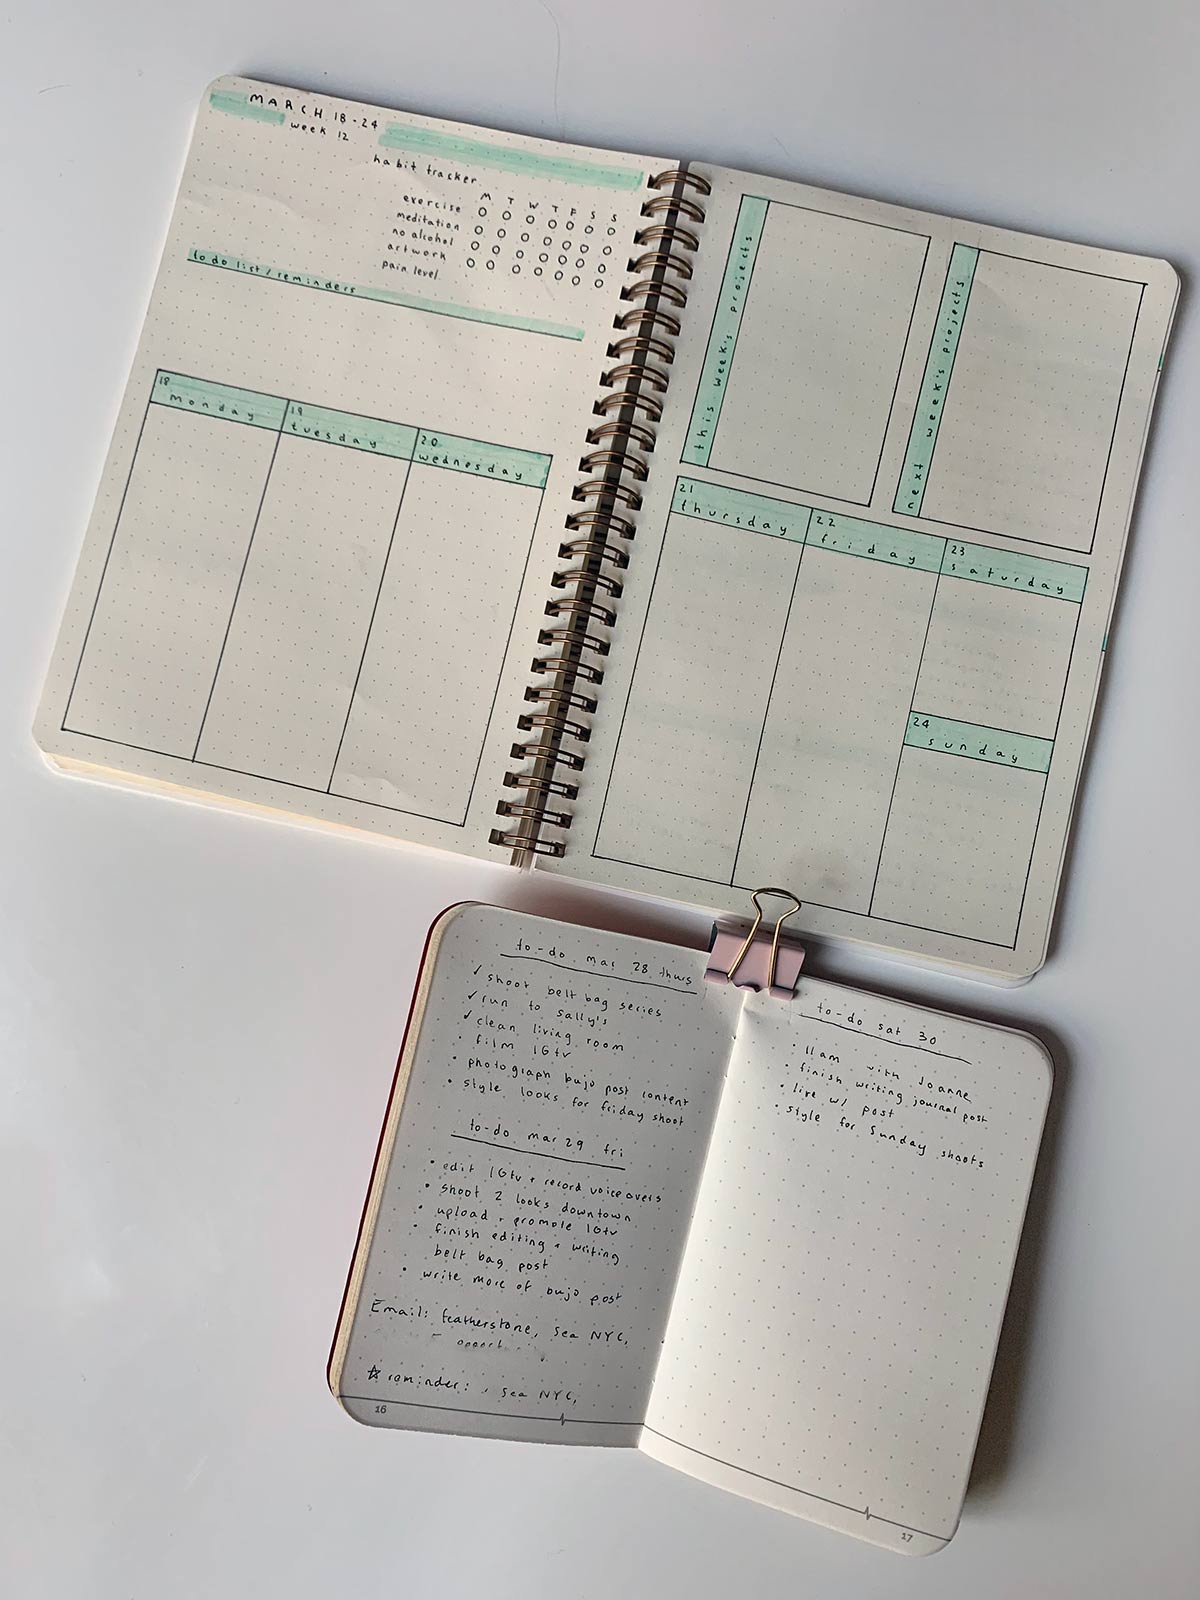 MARCH 18-24
week 12
habit tracker
M T W T F S S
exercise
meditation
no alcohol
artwork
pain level
to do list / reminders
18
monday
19
tuesday
20
wednesday
this week's projects
next week's projects
21
thursday
22
friday
23
saturday
24
sunday
to-do mar 28 thurs
✓ shoot belt bag series
✓ run to sally's
✓ clean living room
• film IGtv
• photograph bujo post content
• style looks for friday shoot
to-do mar 29 fri
• edit IGtv + record voiceovers
• shoot 2 looks downtown
• upload + promote IGtv
• finish editing + writing
belt bag post
• write more of bujo post
Email: featherstone, sea NYC,
☆ reminder: , sea NYC,
16
to-do sat 30
• 11am with Joanne
• finish writing journal post
• live w/ post
• style for Sunday shoots
17